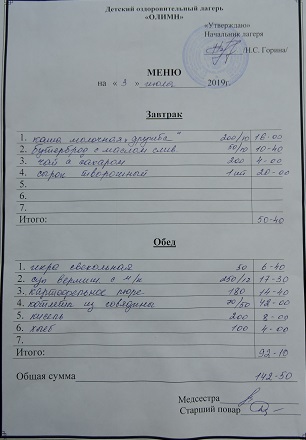 Детский оздоровительный лагерь
«ОЛИМП»
«Утверждаю»
Начальник лагеря
/Н.С. Горина/
МЕНЮ
на « 3 » июля 2019г.
Завтрак
1. каша молочная „дружба" 200/10 16-00
2. Бутерброд с маслом слив. 50/10 10-40
3. чай с сахаром 200 4-00
4. сырок творожный 1 шт 20-00
5.
6.
7.
Итого: 50-40
Обед
1. икра свекольная 50 6-40
2. суп вермиш с м/к 250/12 17-30
3. Картофельное пюре 180 14-40
4. котлета из говядины 70/50 48-00
5. кисель 200 8-00
6. хлеб 100 4-00
7.
Итого: 92-10
Общая сумма 142-50
Медсестра
Старший повар